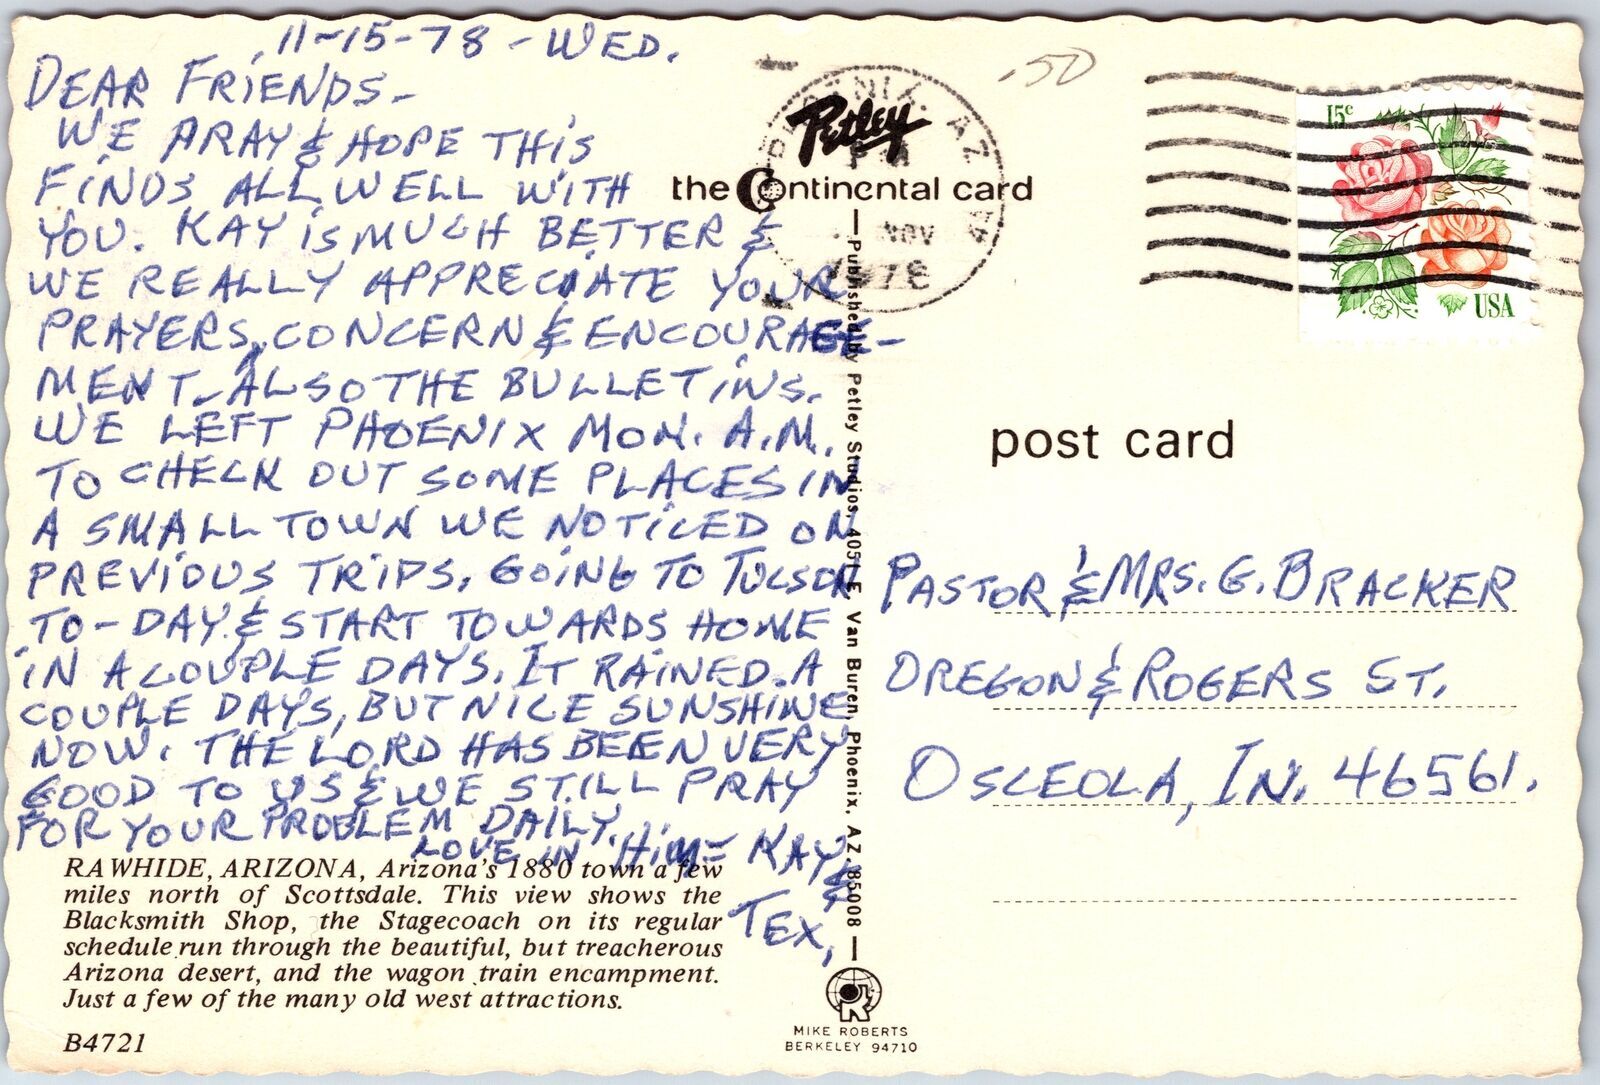 11-15-78 - WED.
DEAR FRIENDS-
WE PRAY & HOPE THIS
FINDS ALL WELL WITH
YOU. KAY IS MUCH BETTER &
WE REALLY APPRECIATE YOUR
PRAYERS, CONCERN & ENCOURAGE-
MENT. ALSO THE BULLETINS.
WE LEFT PHOENIX MON. A.M.
TO CHECK OUT SOME PLACES IN
A SMALL TOWN WE NOTICED ON
PREVIOUS TRIPS. GOING TO TUCSON
TO-DAY & START TOWARDS HOME
IN A COUPLE DAYS. IT RAINED A
COUPLE DAYS, BUT NICE SUNSHINE
NOW. THE LORD HAS BEEN VERY
GOOD TO US & WE STILL PRAY
FOR YOUR PROBLEM DAILY.
LOVE IN "HIM" = KAY &
TEX,
RAWHIDE, ARIZONA, Arizona's 1880 town a few
miles north of Scottsdale. This view shows the
Blacksmith Shop, the Stagecoach on its regular
schedule run through the beautiful, but treacherous
Arizona desert, and the wagon train encampment.
Just a few of the many old west attractions.
B4721
Petley
the Continental card
Published by Petley Studios, 4051 E. Van Buren, Phoenix, AZ. 85008
MIKE ROBERTS
BERKELEY 94710
.50
NIX, AZ
NOV
1978
15c
USA
post card
PASTOR & MRS. G. BRACKER
OREGON & ROGERS ST.
OSCEOLA, IN. 46561.